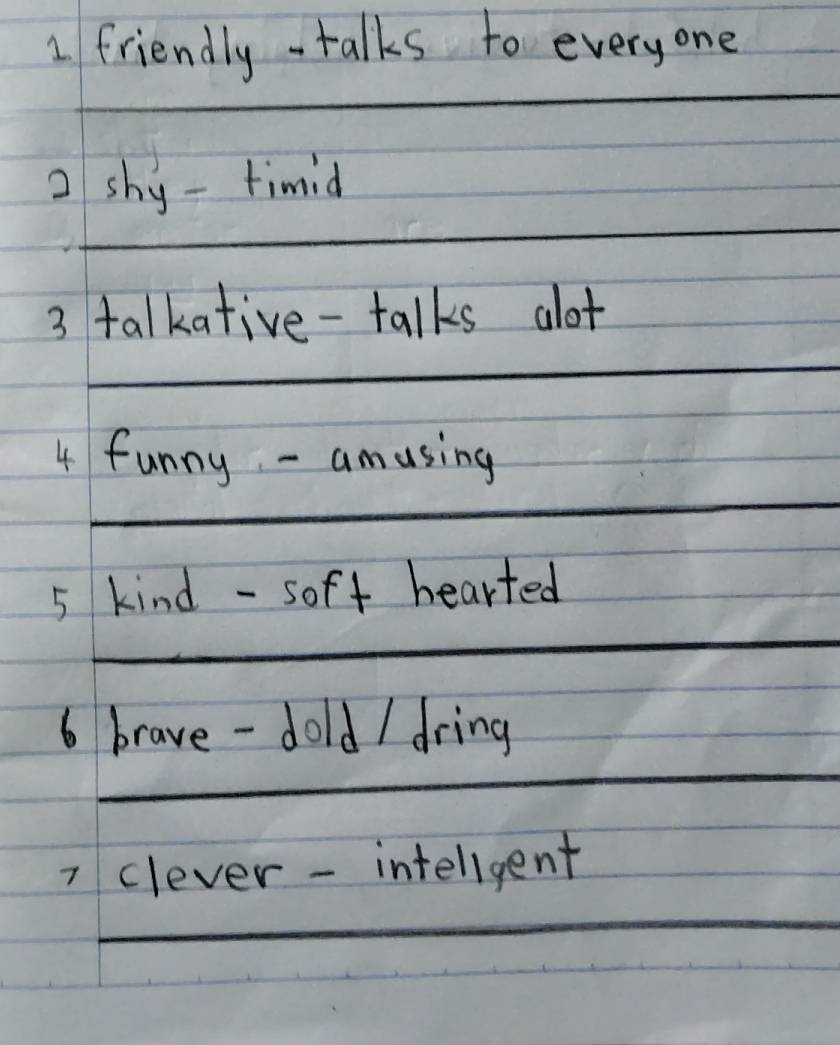 1 friendly - talks to everyone
2 shy - timid
3 talkative - talks alot
4 funny - amusing
5 kind - soft hearted
6 brave - dold / dring
7 clever - intellgent